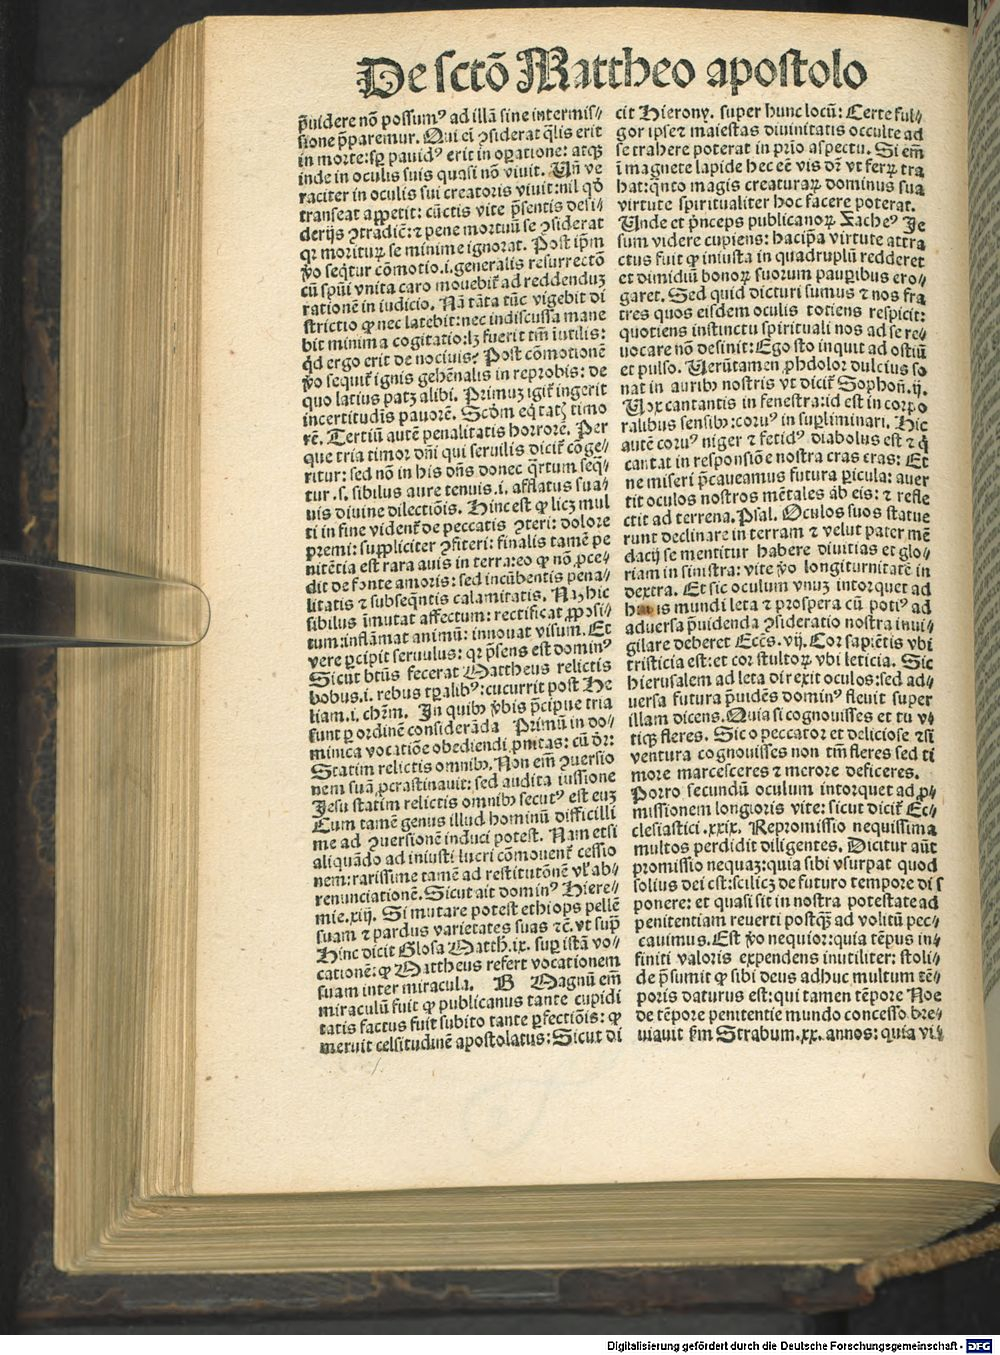 De sctō Mattheo apostolo
p̄uidere nō possumꝰ ad illā sine intermis⸗
sione p̄paremur. Qui eī ꝯsiderat q̄lis erit
in morte: sꝑ pauidꝰ erit in oꝑatione: atqꝫ
inde in oculis suis quasi nō viuit. Uñ ve
raciter in oculis sui creatoris viuit: nil qd̄
transeat appetit: cūctis vite p̄sentis desi⸗
derijs ꝯtradic̄: ⁊ pene mortuū se ꝯsiderat
qꝛ moriturꝝ se minime ignorat. Post ip̄m
v̄o seq̄tur cōmotio .i. generalis resurrectō
cū sp̄ui vnita caro mouebit̄ ad reddenduꝫ
rationē in iudicio. Nā tāta tūc vigebit di
strictio ꝙ nec latebit: nec indiscussa mane
bit minima cogitatio: lꝫ fuerit tm̄ iutilis:
q̄d ergo erit de nociuis? Post cōmotionē
v̄o sequit̄ ignis gehēnalis in reprobis: de
quo latius patꝫ alibi. Primuꝫ igit̄ ingerit
incertitudīs pauorē. Scd̄m eq̄tatꝫ timo
rē. Tertiū autē penalitatis horrorē. Per
que tria timor dn̄i qui seruilis dicit̄ cōge⸗
ritur: sed nō in his dn̄s donec q̄rtum seq̄⸗
tur .s. sibilus aure tenuis .i. afflatus sua⸗
uis diuine dilectiōis. Hinc est ꝙ licꝫ mul
ti in fine vident̄ de peccatis ꝯteri: dolore
premi: suppliciter ꝯfiteri: finalis tamē pe
nitētia est rara auis in terra: eo ꝙ nō ꝓce⸗
dit de fonte amoris: sed incūbentis pena⸗
litatis ⁊ subseq̄ntis calamitatis. Naꝫ hic
sibilus īmutat affectum: rectificat ꝓposi⸗
tum: inflāmat animū: innouat visum. Et
vere ꝑcipit seruulus: qꝛ p̄sens est dominꝰ
Sicut btūs fecerat Mattheus relictis
bobus .i. rebus tꝑalibꝰ: cucurrit post He
liam .i. chr̄m. In quibꝫ v̄bis p̄cipue tria
sunt ꝑ ordinē considerāda Primū in do⸗
minica vocatiōe obediendi ꝓnitas: cū dr̄:
Statim relictis omnibꝫ. Non em̄ ꝯuersio
nem suā ꝓcrastinauit: sed audita iussione
Jesu statim relictis omnibꝫ secutꝰ est euꝫ
Cum tamē genus illud hominū difficilli
me ad ꝯuersionē induci potest. Nam etsi
aliquādo ad iniusti lucri cōmouent̄ cessio
nem: rarissime tamē ad restitutōnē vl̄ ab⸗
renunciationē. Sicut ait dominꝰ Hiere⸗
mie .xiij. Si mutare potest ethiops pellē
suam ⁊ pardus varietates suas ⁊c̄. vt sup̄
Hinc dicit Glosa Matth. ix. suꝑ istā vo⸗
cationē: ꝙ Mattheus refert vocationem
suam inter miracula. B Magnū em̄
miraculū fuit ꝙ publicanus tante cupidi
tatis factus fuit subito tante ꝑfectiōis: ꝙ
meruit celsitudinē apostolatus: Sicut di
cit Hierony. super hunc locū: Certe ful⸗
gor ipse ⁊ maiestas diuinitatis occulte ad
se trahere poterat in prīo aspectu. Si em̄
ī magnete lapide hec eē vis dr̄ vt ferꝝ tra
hat: qnto magis creaturaꝝ dominus sua
virtute spiritualiter hoc facere poterat.
Unde et p̄nceps publicanoꝝ Zacheꝰ Je
sum videre cupiens: hac ip̄a virtute attra
ctus fuit ꝙ iniusta in quadruplū redderet
et dimidiū bonoꝝ suorum pauꝑibus ero⸗
garet. Sed quid dicturi sumus ⁊ nos fra
tres quos eisdem oculis totiens respicit:
quotiens instinctu spirituali nos ad se re⸗
uocare nō desinit: Ego sto inquit ad ostiū
et pulso. Verūtamen ꝓhdolor dulcius so
nat in auribꝫ nostris vt dicit̄ Sophoñ. ij.
Uox cantantis in fenestra: id est in corpo
ralibus sensibꝫ: coruꝰ in suꝑliminari. Hic
autē coruꝰ niger ⁊ fetidꝰ diabolus est ⁊ q̄
cantat in responsiōe nostra cras cras: Et
ne miseri p̄caueamus futura ꝑicula: auer
tit oculos nostros mētales ab eis: ⁊ refle
ctit ad terrena. Psal. Oculos suos statue
runt declinare in terram ⁊ velut pater mē
dacij se mentitur habere diuitias et glo⸗
riam in sinistra: vite v̄o longiturnitatē in
dextra. Et sic oculum vnuꝫ intorquet ad
is mundi leta ⁊ prospera cū potiꝰ ad
aduersa p̄uidenda ꝯsideratio nostra inui⸗
gilare deberet Ecc̄s. vij. Cor sapiētis vbi
tristicia est: et cor stultoꝝ vbi leticia. Sic
hierusalem ad leta direxit oculos: sed ad⸗
uersa futura p̄uidēs dominꝰ fleuit super
illam dicens. Quia si cognouisses et tu v⸗
tiqꝫ fleres. Sic o peccator et deliciose ⁊ si
ventura cognouisses non tm̄ fleres sed ti
more marcesceres ⁊ merore deficeres.
Porro secundū oculum intorquet ad ꝓ⸗
missionem longioris vite: sicut dicit̄ Ec⸗
clesiastici .xxix. Repromissio nequissima
multos perdidit diligentes. Dicitur aūt
promissio nequaꝫ: quia sibi vsurpat quod
solius dei est: scilicꝫ de futuro tempore dis
ponere: et quasi sit in nostra potestate ad
penitentiam reuerti postqꝫ ad volitū pec⸗
cauimus. Est v̄o nequior: quia tēpus in⸗
finiti valoris expendens inutiliter: stoli⸗
de p̄sumit ꝙ sibi deus adhuc multum tē⸗
poris daturus est: qui tamen tēpore Noe
de tēpore penitentie mundo concesso bre⸗
uiauit ẜm Strabum .xx. annos: quia vi⸗
Digitalisierung gefördert durch die Deutsche Forschungsgemeinschaft - DFG